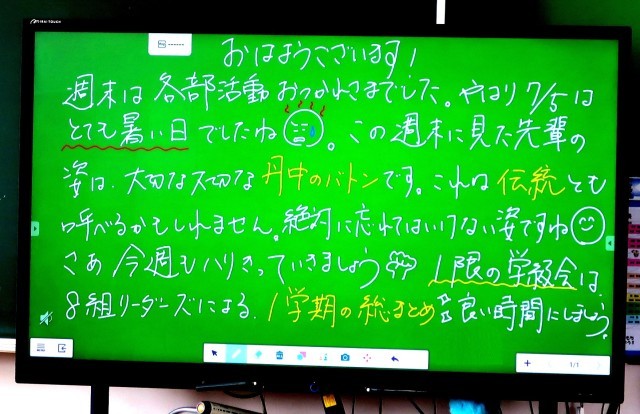 おはようございます!
週末は各部活動おつかれさまでした。やはり7/5は
とても暑い日でしたね。この週末に見た先輩の
姿は、大切な大切な丹中のバトンです。これは伝統とも
呼べるかもしれません。絶対に忘れてはいけない姿ですね
さあ今週もハリきっていきましょう 1限の学総会は、
8組リーダーズによる、1学期の総まとめ 良い時間にしましょう。
1/1